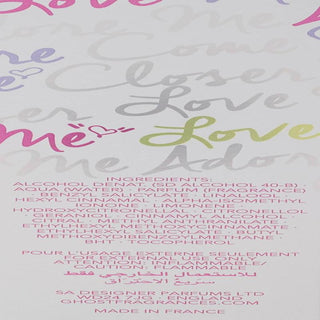 Love
ore Me Come
Come
re Closer
ser Love
Me Love
Me Ador
INGREDIENTS:
ALCOHOL DENAT. (SD ALCOHOL 40-B) ·
AQUA (WATER) · PARFUM (FRAGRANCE)
· BENZYL SALICYLATE · LINALOOL ·
HEXYL CINNAMAL · ALPHA-ISOMETHYL
IONONE · LIMONENE ·
HYDROXYCITRONELLAL · CITRONELLOL
· GERANIOL · CINNAMYL ALCOHOL ·
CITRAL · METHYLANILATE
ETHYLHEXYL METHOXYCINNAMATE ·
ETHYLHEXYL SALICYLATE · BUTYL
METHOXYDIBENZOYLMETHANE ·
BHT · TOCOPHEROL
POUR L'USAGE EXTERNE SEULEMENT
FOR EXTERNAL USE ONLY
ATTENTION: INFLAMMABLE/
CAUTION: FLAMMABLE
للاستعمال الخارجي فقط
سريع الاحتراق
SA DESIGNER PARFUMS LTD
WD24 7JG, ENGLAND
GHOSTFRAGRANCES.COM
MADE IN FRANCE